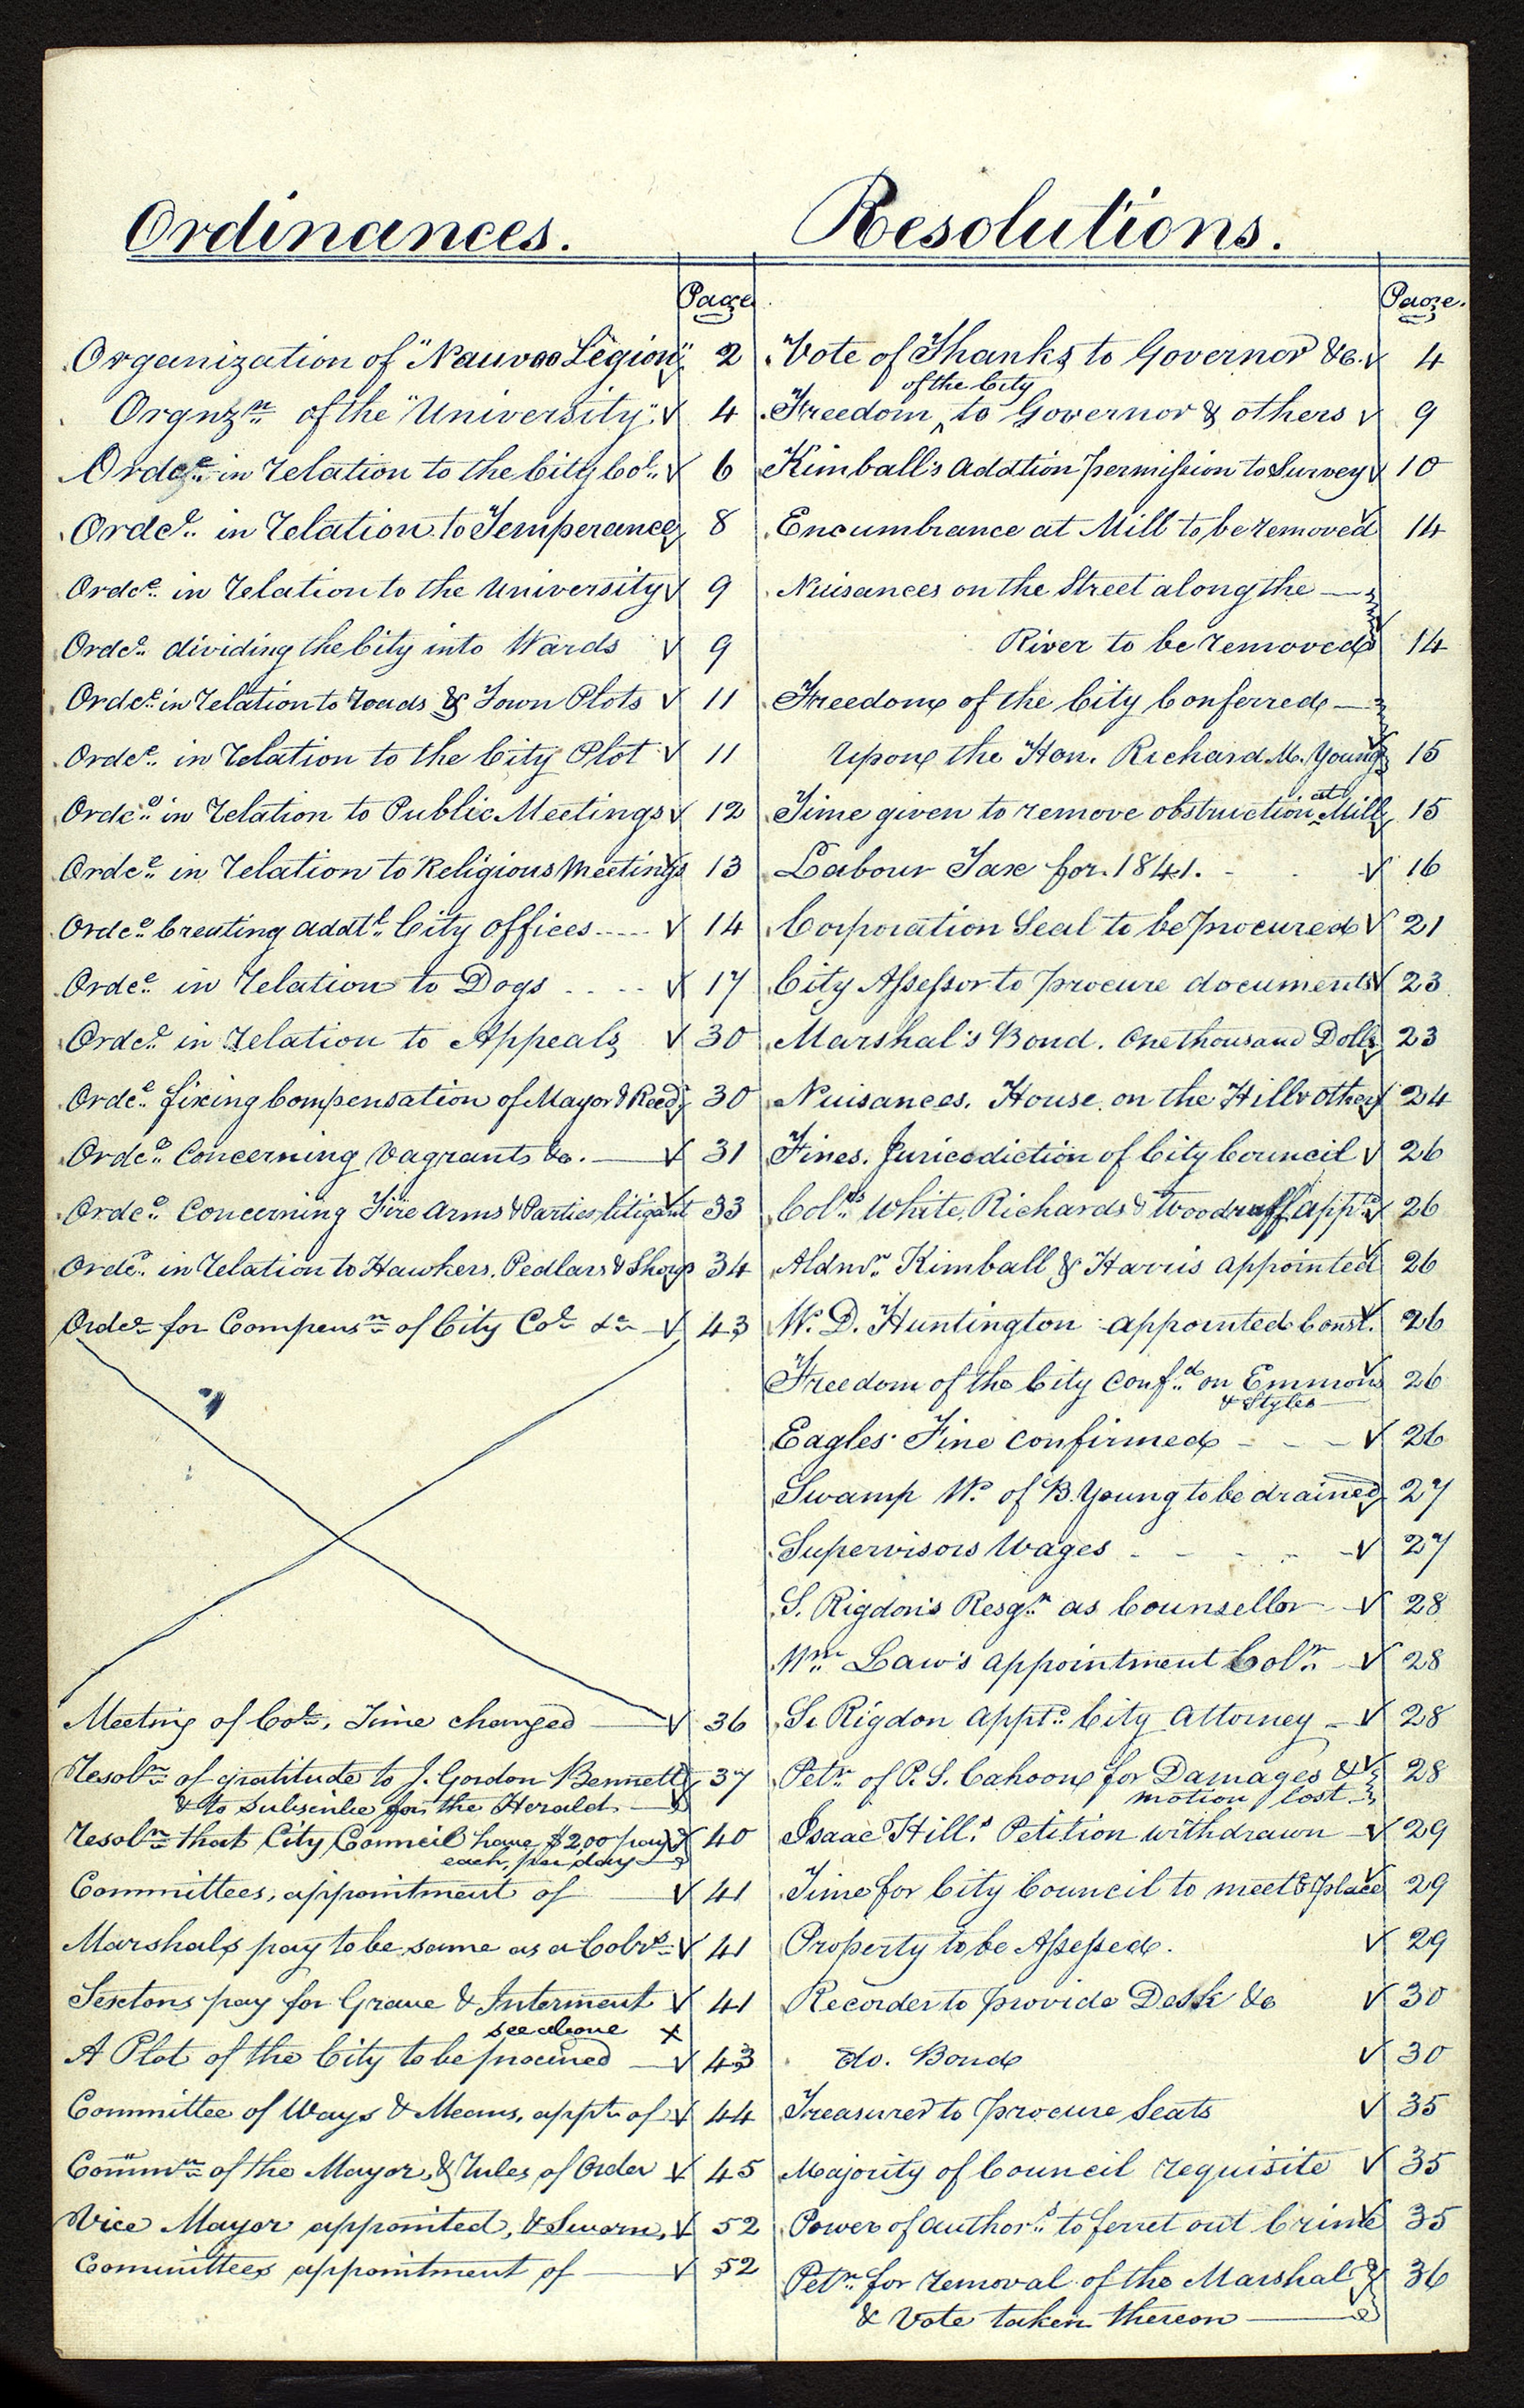 Ordinances.
Page
Organization of "Nauvoo Legion" ✓ 2
Orgnzn. of the "University". ✓ 4
Ordce. in relation to the City Col. ✓ 6
Ordce. in relation to Temperance ✓ 8
Ordce. in relation to the University ✓ 9
Ordce. dividing the City into Wards ✓ 9
Ordce. in relation to roads & Town Plots ✓ 11
Ordce. in relation to the City Plot ✓ 11
Ordce. in relation to Public Meetings ✓ 12
Ordce. in relation to Religious Meetings ✓ 13
Ordce. Creating addtl. City Offices ..... ✓ 14
Ordce. in relation to Dogs .... ✓ 17
Ordce. in relation to Appeals ✓ 30
Ordce. fixing Compensation of Mayor & Recdr. ✓ 30
Ordce. Concerning Vagrants &c. — ✓ 31
Ordce. Concerning Fire Arms & Parties litigant ✓ 33
Ordce. in relation to Hawkers, Pedlars & Shows 34
Ordce. for Compensn. of City Col. &c — ✓ 43
Meeting of Col., Time changed — ✓ 36
Resoln. of gratitude to J. Gordon Bennett ✓ 37
& to Subscribe for the Herald —
Resoln. that City Council have $2,00 pay ✓ 40
each, per day —
Committees, appointment of — ✓ 41
Marshals pay to be same as a Colrs. ✓ 41
Sextons pay for Grave & Interment ✓ 41
see above x
A Plot of the City to be procured — ✓ 43
Committee of Ways & Means, appt. of ✓ 44
Commn. of the Mayor, & Rules of Order ✓ 45
Vice Mayor appointed, & Sworn, ✓ 52
Committees appointment of — ✓ 52
Resolutions.
Page.
Vote of Thanks to Governor &c. ✓ 4
of the City
Freedom ‸ to Governor & others ✓ 9
Kimball's Addtion permission to Survey ✓ 10
Encumbrance at Mill to be removed ✓ 14
Nuisances on the Street along the —
River to be removed ✓ 14
Freedom of the City Conferred —
Upon the Hon. Richard M. Young ✓ 15
Time given to remove obstruction at Mill ✓ 15
Labour Tax for 1841. - - ✓ 16
Corporation Seal to be procured ✓ 21
City Assessor to procure documents ✓ 23
Marshal's Bond. One thousand Dolls ✓ 23
Nuisances. House on the Hill & others ✓ 24
Fines. Juricsdiction of City Council ✓ 26
Colrs. White, Richards & Woodruff apptd. ✓ 26
Aldmn. Kimball & Harris appointed ✓ 26
W. D. Huntington appointed Const. ✓ 26
Freedom of the City Confd. on Emmons ✓ 26
& Styles —
Eagles Fine Confirmed - - - ✓ 26
Swamp W. of B. Young to be drained ✓ 27
Supervisors Wages - - - - - ✓ 27
S. Rigdon's Resgn. as Counsellor — ✓ 28
Wm. Law's appointment Colr. — ✓ 28
S. Rigdon apptd. City Attorney — ✓ 28
Petn. of P. S. Cahoon for Damages & ✓ 28
motion lost
Isaac Hill's Petition withdrawn — ✓ 29
Time for City Council to meet & place ✓ 29
Property to be Assessed. ✓ 29
Recorder to provide Desk &c ✓ 30
do. Bond ✓ 30
Treasurer to procure Seats ✓ 35
Majority of Council requisite ✓ 35
Power of authors. to ferret out Crime ✓ 35
Petn. for removal of the Marshal ✓ 36
& Vote taken thereon —